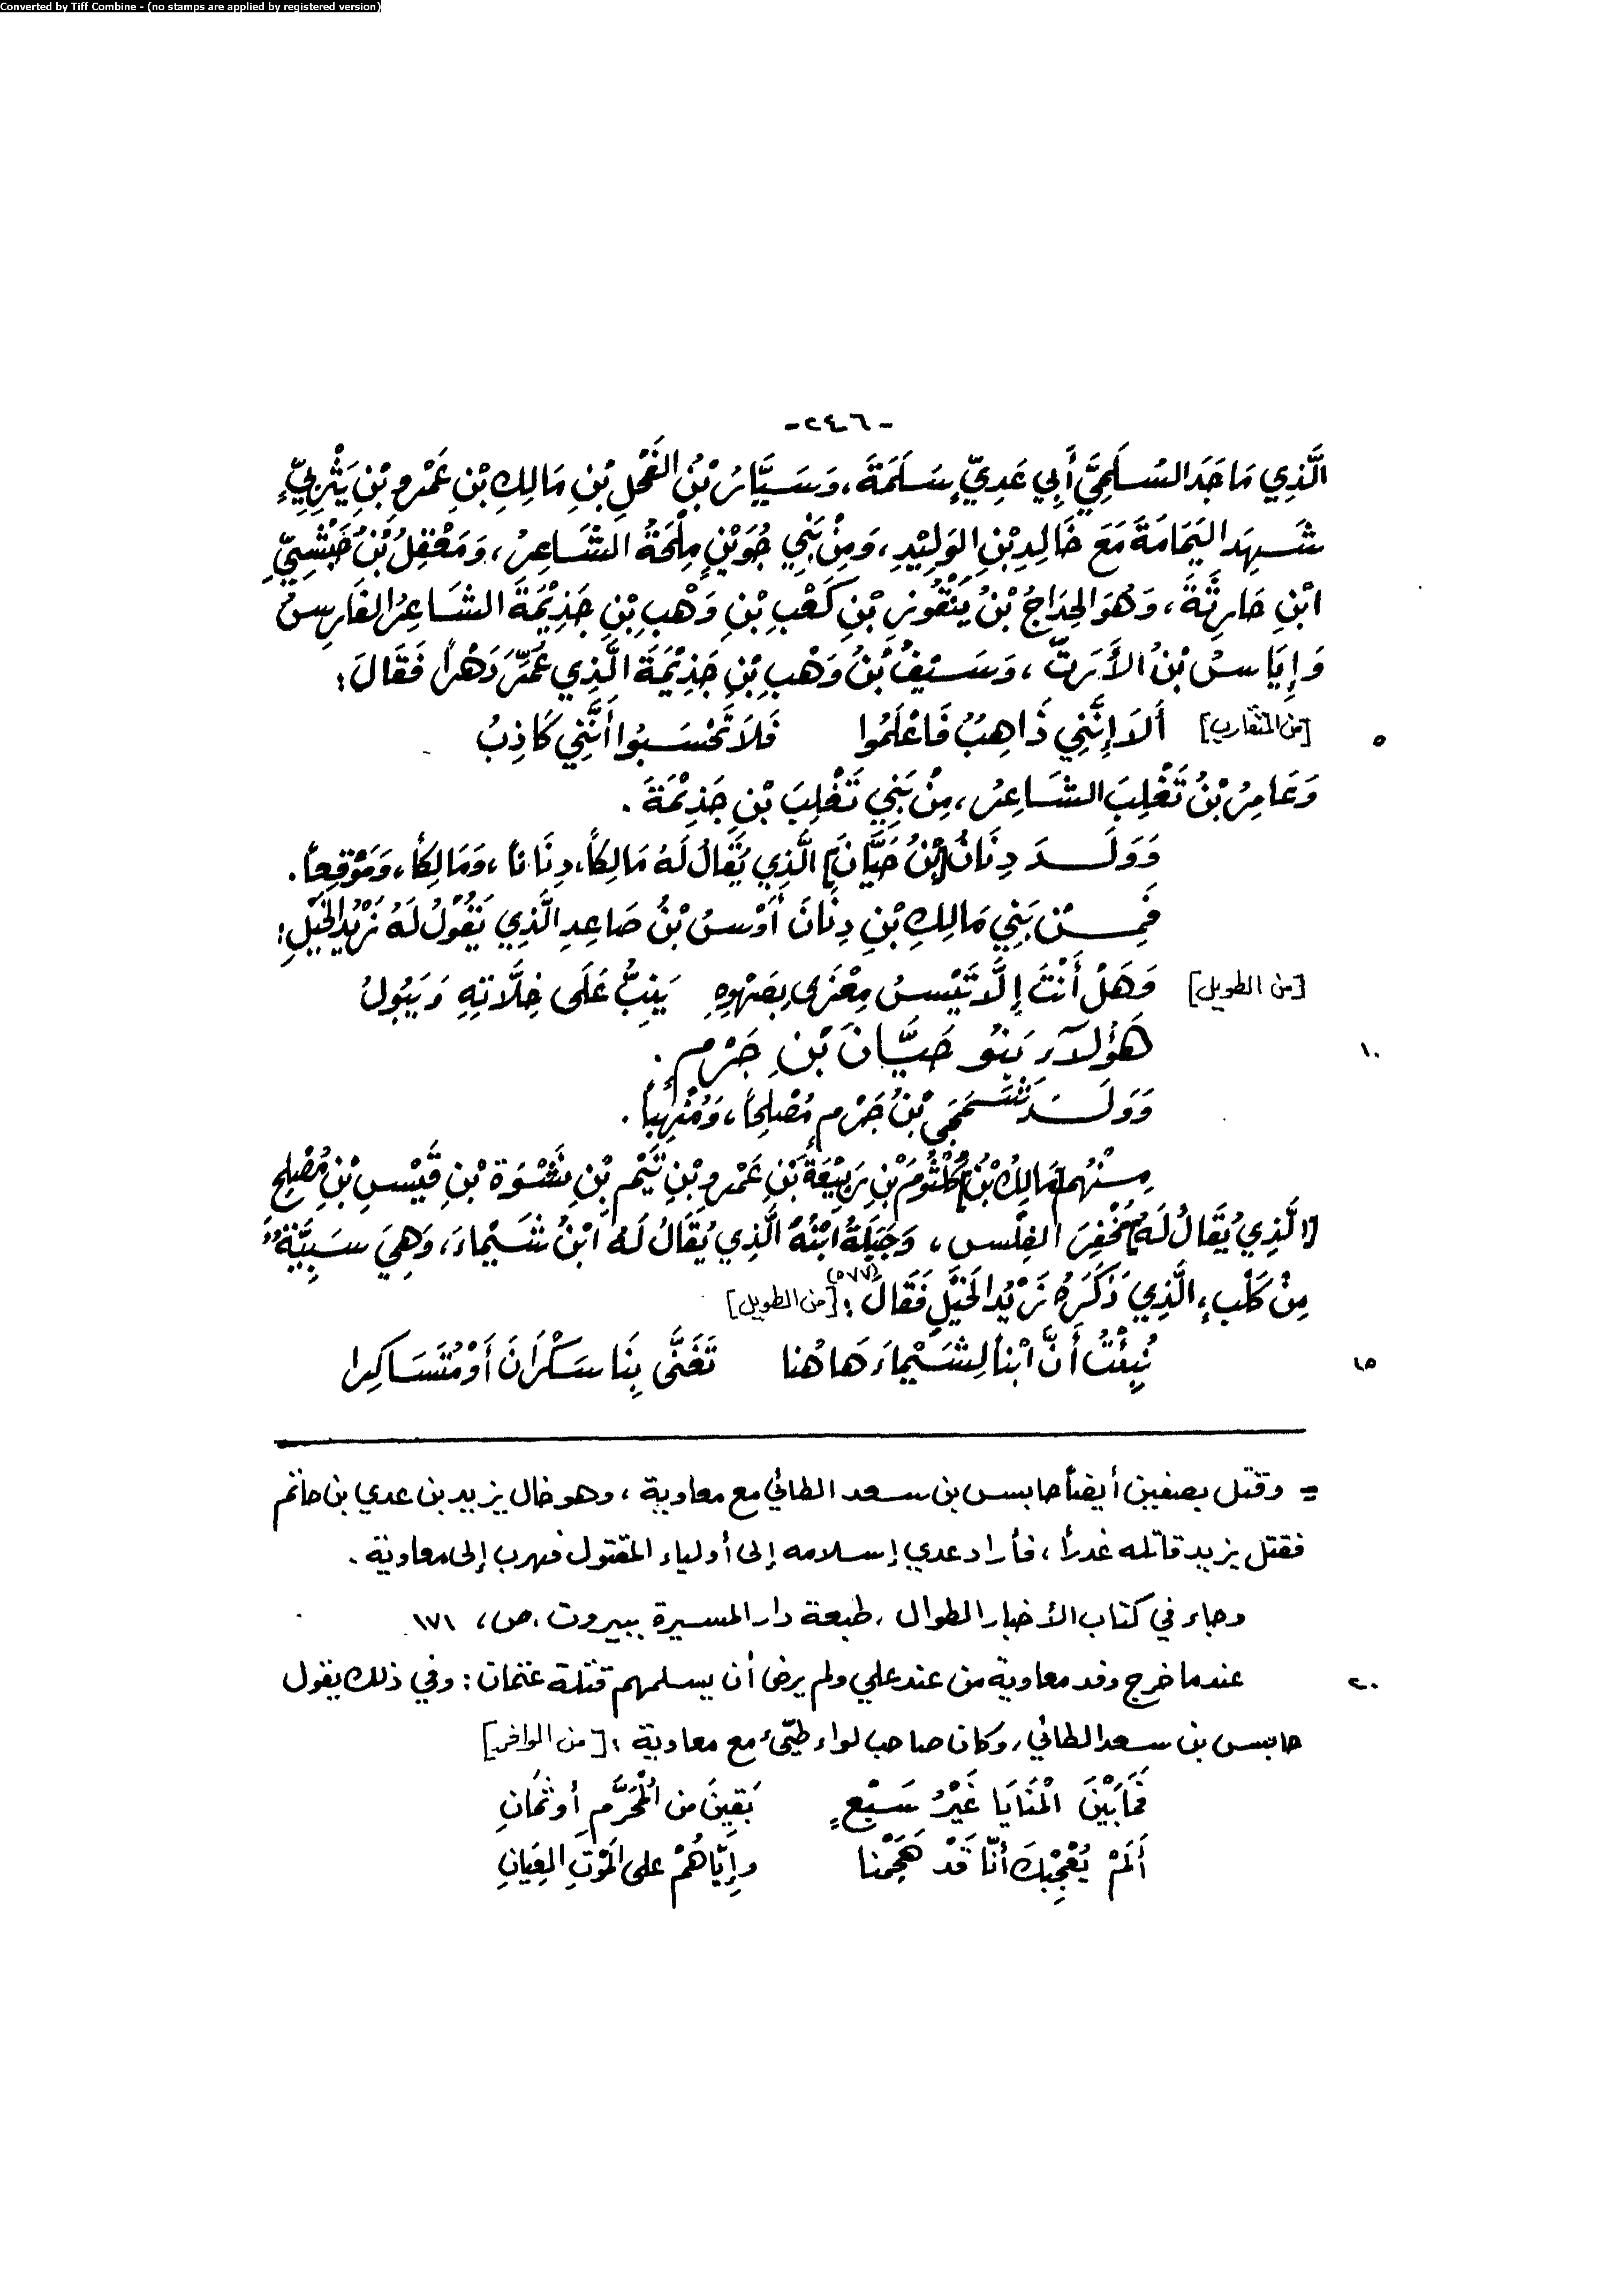 Converted by Tiff Combine - (no stamps are applied by registered version)
-٢٤٦-
الَّذِي مَاجَدَ السُلَمِيَّ أَبِي عَدِيِّ سَلَمَةَ، وَسَيَّارُ بْنُ الفَحْلِ بْنِ مَالِكِ بْنِ عَمْرِو بْنِ يَثْرِبِيٍّ
شَهِدَ اليَمَامَةَ مَعَ خَالِدِ بْنِ الوَلِيْدِ، وَمِنْ بَنِي جُوَيْنٍ مِلْحَةُ الشَاعِرُ، وَمَعْقِلُ بْنُ حَبْشِيِّ
ابْنِ حَارِثَةَ، وَهُوَ الحِدَاجُ بْنُ يَنْقُورِ بْنِ كَعْبِ بْنِ وَهْبِ بْنِ جَذِيْمَةَ الشَاعِرُ الفَارِسُ
وَإِيَاسُ بْنُ الأَرَتِّ، وَسَيْفُ بْنُ وَهْبِ بْنِ جَذِيْمَةَ الَّذِي عُمِّرَ دَهْراً فَقَالَ:
[من المتقارب] أَلاَ إِنَّنِي ذَاهِبٌ فَاعْلَمُوا فَلاَ تَحْسَبُوا أَنَّنِي كَاذِبُ ٥
وَعَامِرُ بْنُ تَغْلِبَ الشَاعِرُ، مِنْ بَنِي تَغْلِبَ بْنِ جَذِيْمَةَ.
وَوَلَدَ دِنَانُ [بْنُ حَيَّانَ] الَّذِي يُقَالُ لَهُ مَالِكاً، دِنَاناً، وَمَالِكاً، وَمَوْقِعاً.
فَمِنْ بَنِي مَالِكِ بْنِ دِنَانَ أَوْسُ بْنُ صَاعِدِ الَّذِي يَقُوْلُ لَهُ زَيْدُ الخَيْلِ:
[من الطويل] وَهَلْ أَنْتَ إِلَّا تَيْسُ مِعْزَى بِصَهْوِهِ يَنِبُّ عَلَى خِلَّاتِهِ وَيَبُولُ
هَؤُلاَءِ بَنُو حَيَّانَ بْنِ جَرْمٍ. ١٠
وَوَلَدَ شَمَجَى بْنُ جَرْمٍ مُصْلِحاً، وَمُنْهِباً.
مِنْهُم [مَالِكُ بْنُ] كُلْثُوْمَ بْنِ رَبِيْعَةَ بْنِ عَمْرِو بْنِ تَيْمِ بْنِ نَشْوَةَ بْنِ قَيْسِ بْنِ مُصْلِحِ
[الَّذِي يُقَالُ لَهُ] مُخْفِرَ الفِلْسِ، وَجَبَلَةُ ابْنُهُ الَّذِي يُقَالُ لَهُ ابْنُ شَيْمَاءَ، وَهِيَ سَبِيَّةٌ
مِنْ كَلْبٍ، الَّذِي ذَكَرَهُ زَيْدُ الخَيْلِ فَقَالَ: (٥٧٧) [من الطويل]
نُبِئْتُ أَنَّ ابْناً لِشَيْمَاءَ هَاهُنا تَغَنَّى بِنَا سَكْرَانَ أَوْ مُتَسَاكِرا ١٥
= وقتل بصفين أيضاً حابس بن سعد الطائي مع معاوية، وهو خال يزيد بن عدي بن حاتم
فقتل يزيد قاتله غدراً، فأراد عدي إسلامه إلى أولياء المقتول فهرب إلى معاوية.
وجاء في كتاب الأخبار الطوال، طبعة دار المسيرة ببيروت، ص، ١٧١
عندما خرج وفد معاوية من عند علي ولم يرض أن يسلمهم قتلة عثمان: وفي ذلك يقول ٢٠
حابس بن سعد الطائي، وكان صاحب لواء طيّئ مع معاوية: [من الوافر]
فَمَا بَيْنَ الْمَنَايَا غَيْرُ سَبْعٍ بَقِينَ من الْمُحَرَّمِ أو ثَمَانِ
أَلَمْ يُعْجِبْكَ أنّا قَدْ هَجَمْنا وإِيّاهُمْ على الْمَوْتِ العِيَانِ